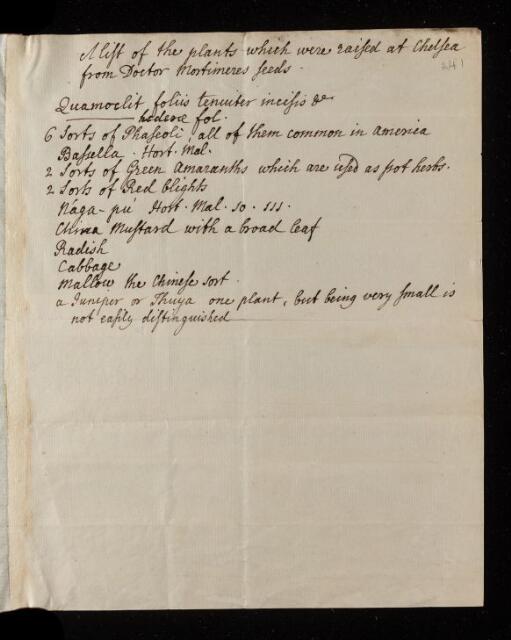 A list of the plants which were raised at Chelsea
from Doctor Mortimeres seeds.
241
Quamoclit foliis tenuiter incisis &c
hederæ fol.
6 Sorts of Phaseoli, all of them common in America
Bassella. Hort. Mal.
2 Sorts of Green Amaranths which are used as pot herbs.
2 Sorts of Red blights
Naga-pu Hort. Mal. 10. 111.
China Mustard with a broad leaf
Radish
Cabbage
Mallow the Chinese sort.
a Juniper or Thuya one plant, but being very small is
not easily distinguished